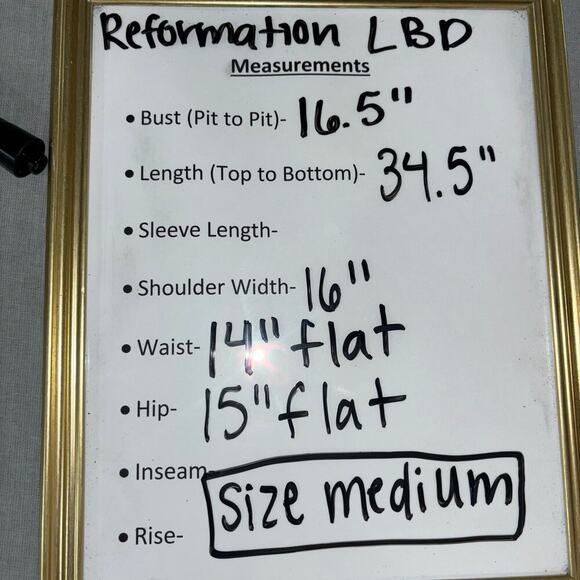 Reformation LBD
Measurements
• Bust (Pit to Pit)- 16.5"
• Length (Top to Bottom)- 34.5"
• Sleeve Length-
• Shoulder Width- 16"
• Waist- 14" flat
• Hip- 15" flat
• Inseam-
size medium
• Rise-